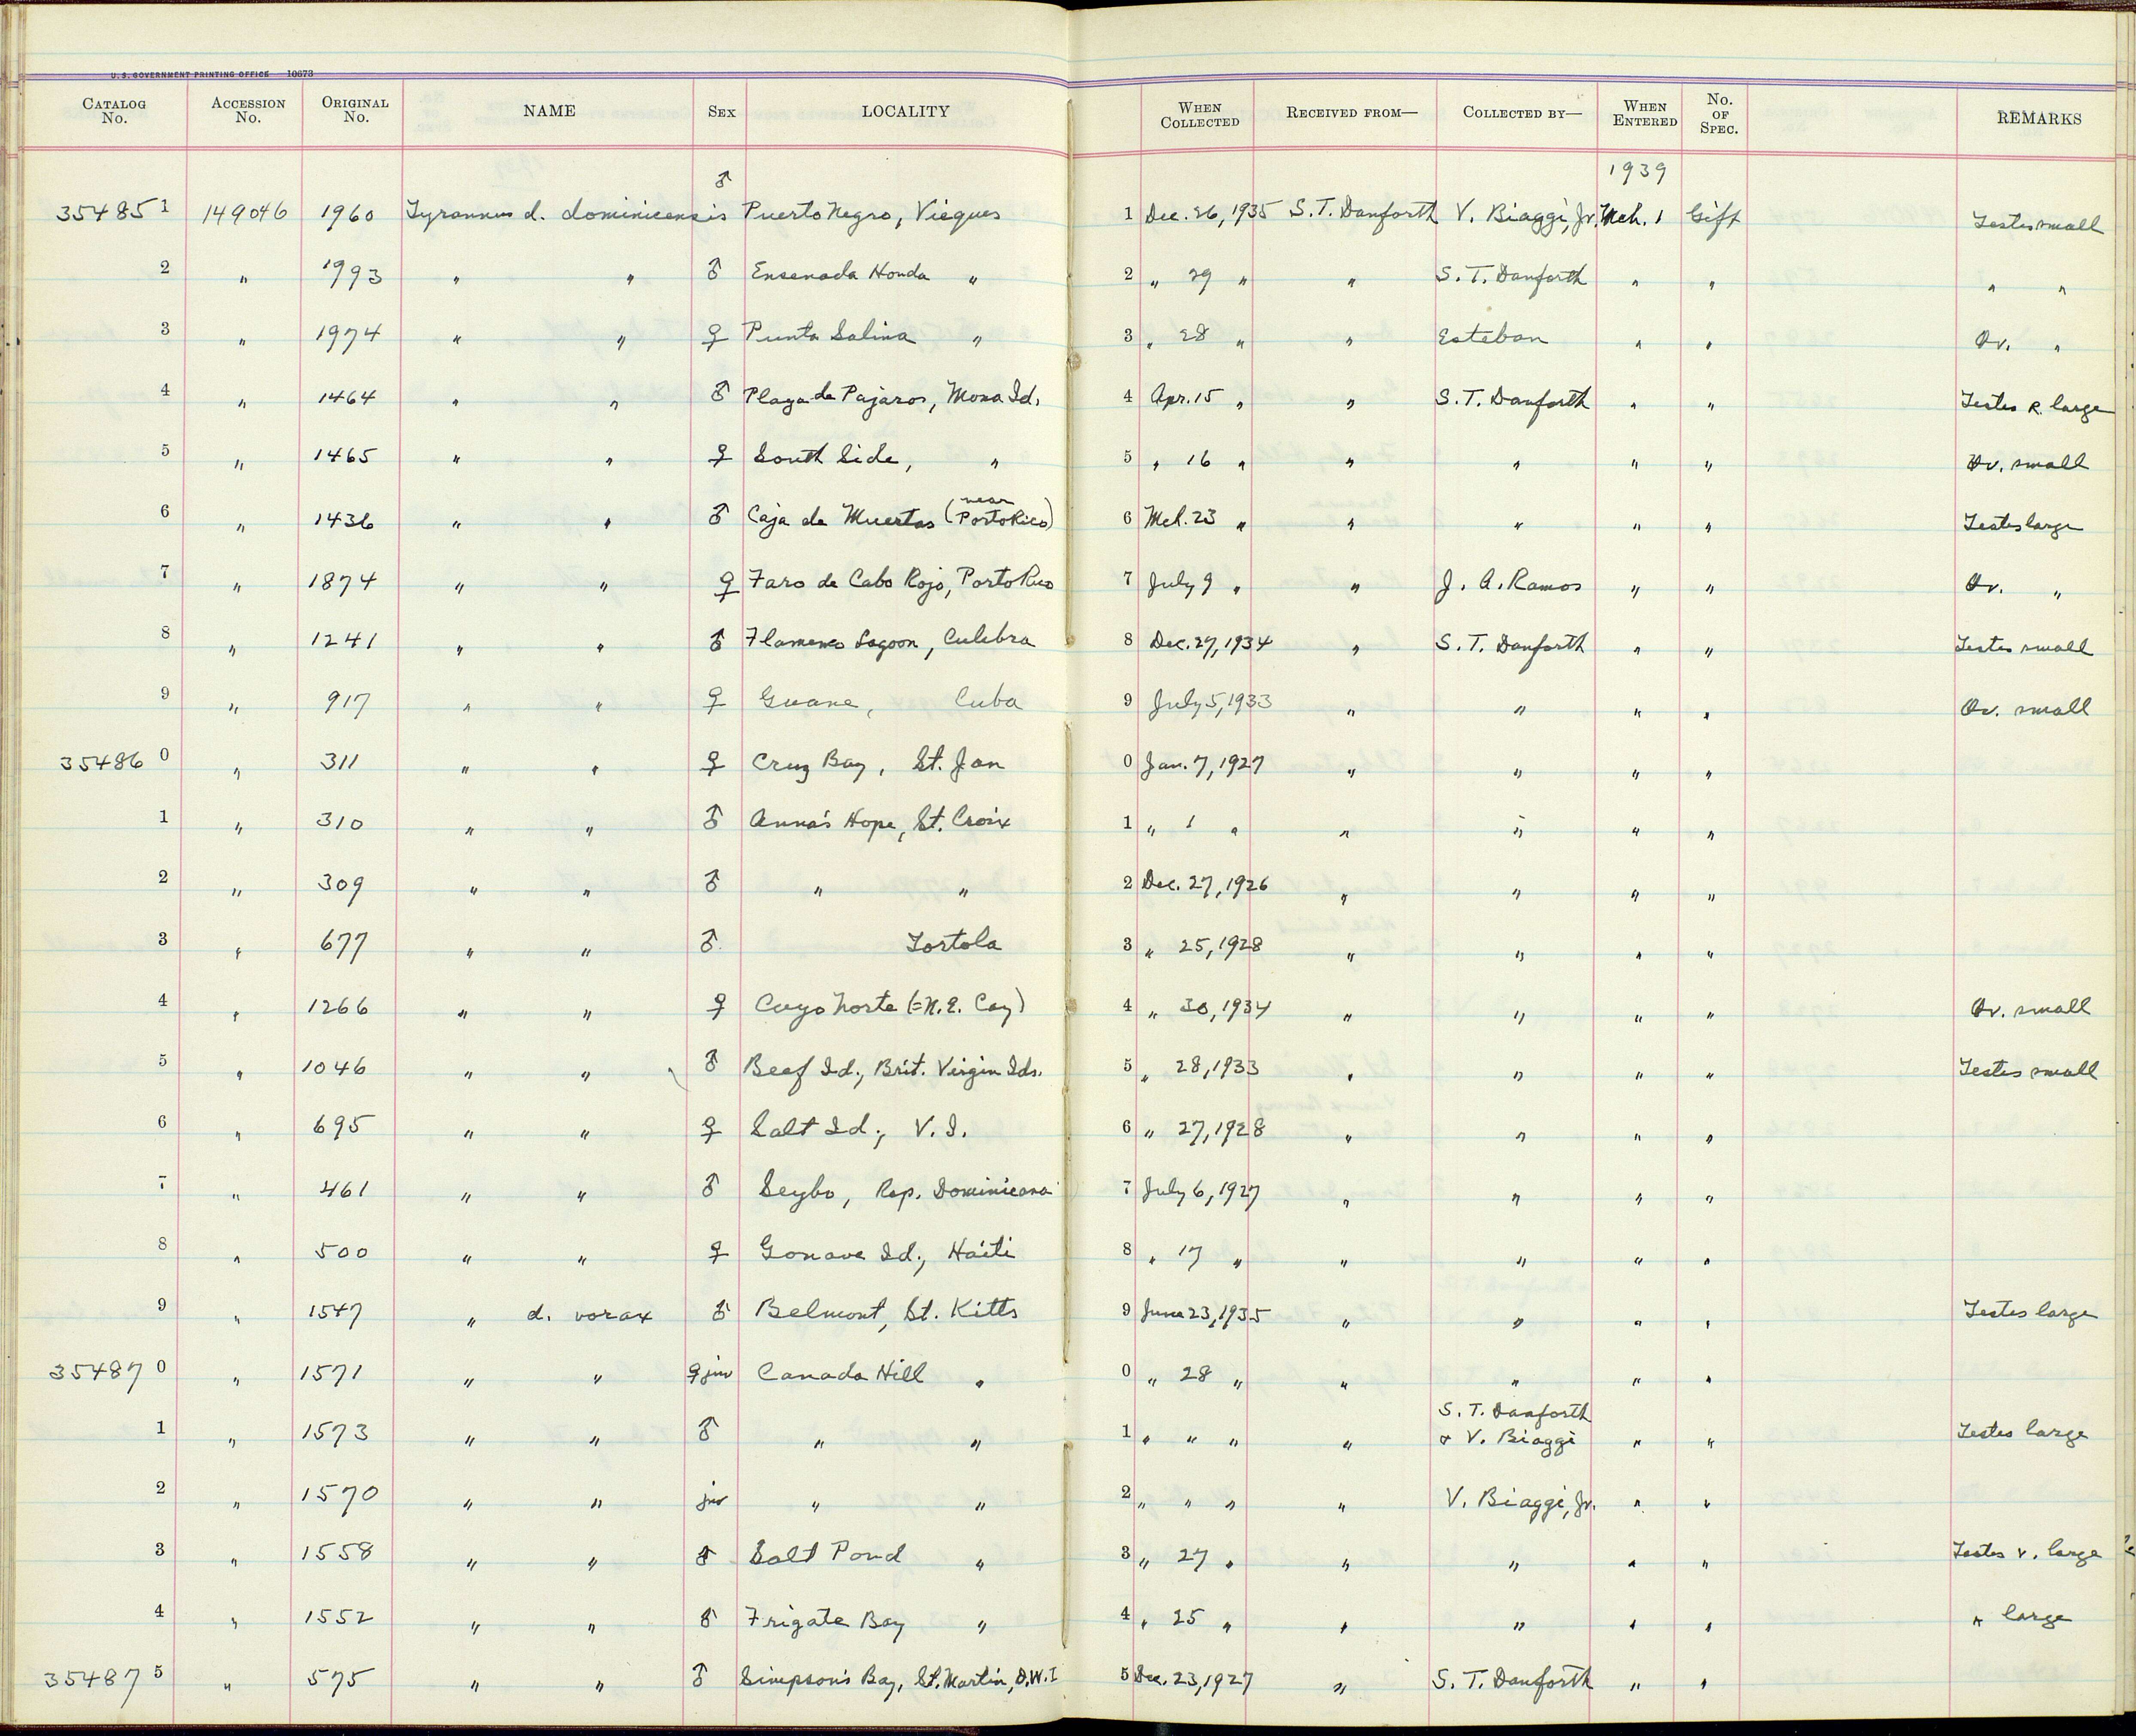 U. S. GOVERNMENT PRINTING OFFICE 10673
CATALOG No. ACCESSION No. ORIGINAL No. NAME SEX LOCALITY WHEN COLLECTED RECEIVED FROM— COLLECTED BY— WHEN ENTERED No. OF SPEC. REMARKS
1939
35485 1 149046 1960 Tyrannus d. dominicensis ♂ Puerto Negro, Vieques 1 Dec. 26, 1935 S. T. Danforth V. Biaggi, Jr. Mch. 1 Gift Testes small
2 " 1993 " " ♂ Ensenada Honda " 2 " 29 " " S. T. Danforth " " " "
3 " 1974 " " ♀ Punta Salina " 3 " 28 " " Esteban " " Ov. "
4 " 1464 " " ♂ Playa de Pajaros, Mona Id. 4 Apr. 15 " " S. T. Danforth " " Testes R. large
5 " 1465 " " ♀ South Side, " 5 " 16 " " " " " Ov. small
6 " 1436 " " ♂ Caja de Muertos (near Porto Rico) 6 Mch. 23 " " " " " Testes large
7 " 1874 " " ♀ Faro de Cabo Rojo, Porto Rico 7 July 9 " " J. A. Ramos " " Ov. "
8 " 1241 " " ♂ Flamenco Lagoon, Culebra 8 Dec. 27, 1934 " S. T. Danforth " " Testes small
9 " 917 " " ♀ Guane, Cuba 9 July 5, 1933 " " " " Ov. small
35486 0 " 311 " " ♀ Cruz Bay, St. Jan 0 Jan. 7, 1927 " " " "
1 " 310 " " ♂ Anna's Hope, St. Croix 1 " 1 " " " " "
2 " 309 " " ♂ " " 2 Dec. 27, 1926 " " " "
3 " 677 " " ♂ Tortola 3 " 25, 1928 " " " "
4 " 1266 " " ♀ Cayo Norte (=N.E. Cay) 4 " 30, 1934 " " " " Ov. small
5 " 1046 " " ♂ Beef Id., Brit. Virgin Ids. 5 " 28, 1933 " " " " Testes small
6 " 695 " " ♀ Salt Id., V. I. 6 " 27, 1928 " " " "
7 " 461 " " ♂ Seybo, Rep. Dominicana 7 July 6, 1927 " " " "
8 " 500 " " ♀ Gonave Id., Haiti 8 " 17 " " " " "
9 " 1547 " d. vorax ♂ Belmont, St. Kitts 9 June 23, 1935 " " " " Testes large
35487 0 " 1571 " " ♀ juv Canada Hill " 0 " 28 " " " " "
1 " 1573 " " ♂ " " 1 " " " " S. T. Danforth & V. Biaggi " " Testes large
2 " 1570 " " juv " " 2 " " " " V. Biaggi, Jr. " "
3 " 1558 " " ♂ Salt Pond " 3 " 27 " " " " " Testes v. large
4 " 1552 " " ♂ Frigate Bay " 4 " 25 " " " " " " large
35487 5 " 575 " " ♂ Simpson's Bay, St. Martin, D.W.I 5 Dec. 23, 1927 " S. T. Danforth " "